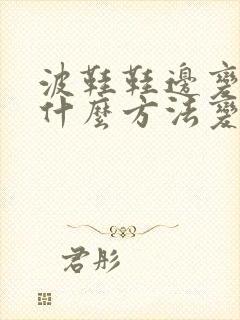 波鞋鞋邊變
什麼方法變
君彤